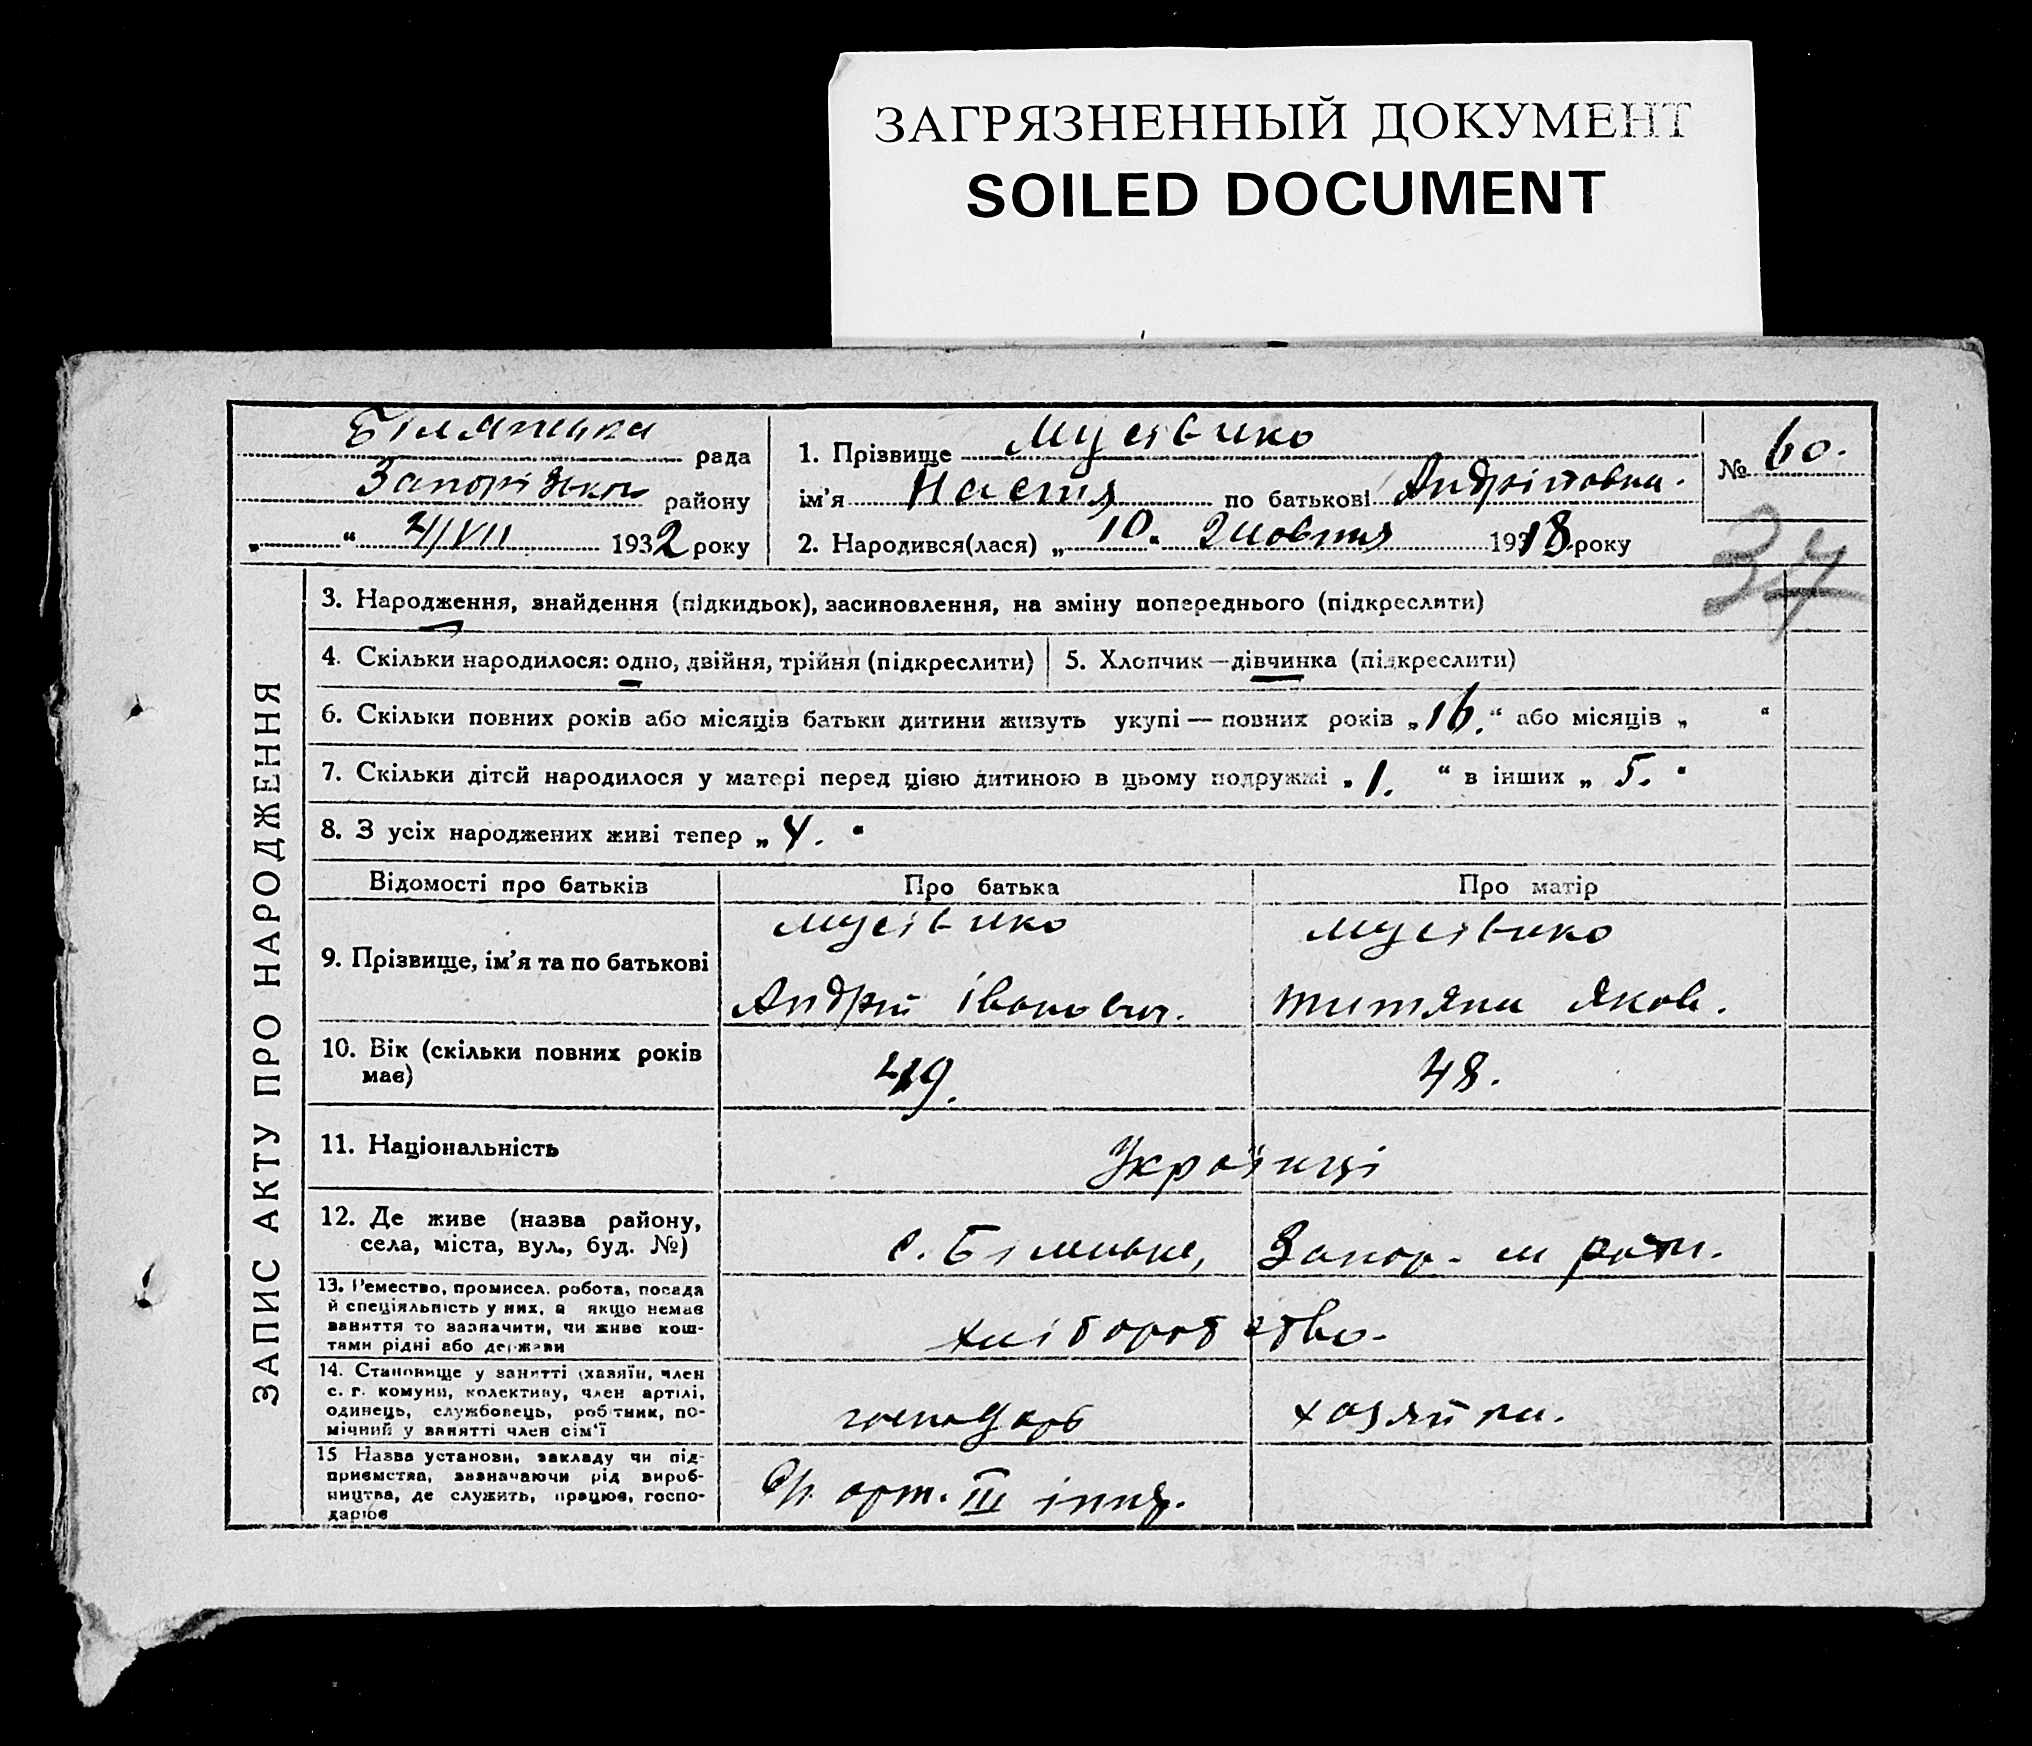 ЗАГРЯЗНЕННЫЙ ДОКУМЕНТ
SOILED DOCUMENT
рада
району
„ “ 2/VII 1932 року
1. Прізвище Мусієнко
ім'я Настя по батькові Андріївна.
2. Народився(лася) „10.“ Жовтня 1918 року
№ 60.
37
ЗАПИС АКТУ ПРО НАРОДЖЕННЯ
3. Народження, знайдення (підкидьок), засиновлення, на зміну попереднього (підкреслити)
4. Скільки народилося: одно, двійня, трійня (підкреслити)
5. Хлопчик—дівчинка (підкреслити)
6. Скільки повних років або місяців батьки дитини живуть укупі — повних років „16.“ або місяців „ “
7. Скільки дітей народилося у матері перед цією дитиною в цьому подружжі „1.“ в інших „5.“
8. З усіх народжених живі тепер „4.“
Відомості про батьків
Про батька
Про матір
9. Прізвище, ім'я та по батькові
Мусієнко
Андрій Іванович.
Мусієнко
Титяна Яков.
10. Вік (скільки повних років
має)
49.
48.
11. Національність
Українці
12. Де живе (назва району,
села, міста, вул., буд. №)
с. Запор. рай.
13. Ремество, промисел. робота, посада
й спеціяльність у них, а якщо немає
заняття то зазначити, чи живе кош-
тами рідні або держави
хліборобство.
14. Становище у занятті (хазяїн, член
с. г. комуни, колективу, член артілі,
одинець, службовець, робітник, по-
мічний у занятті член сім'ї
господарь
хозяйка.
15 Назва установи, закладу чи під-
приємства, зазначаючи рід вироб-
ництва, де служить, працює, госпо-
дарює
арт. III інтер.